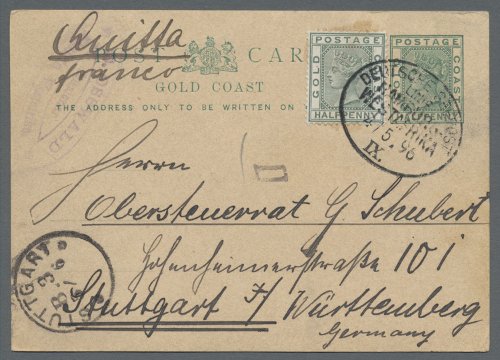 Quitta
franco
POST CARD
GOLD COAST
THE ADDRESS ONLY TO BE WRITTEN ON
POSTAGE
GOLD COAST
HALFPENNY
POSTAGE
COAST
DEUTSCHE
WESTAFRIKA
4/5 96
IX.
Herrn
Obersteuerrat G Schubert
Hohenheimerstraße 101
Stuttgart /Württemberg
Germany
STUTTGART